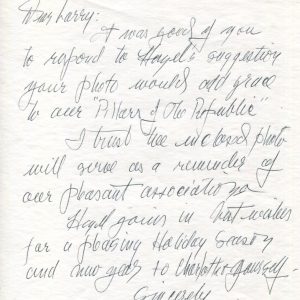 Dear Larry:
It was good of you
to repond to Hazel's suggestion
your photo would add grace
to our "Pillars of the Republic"
I trust the inclosed photo
will serve as a reminder of
our pleasant association
joins in best wishes
for a pleasing Holiday Season
and new year to Charlotte & yourself.
Sincerely